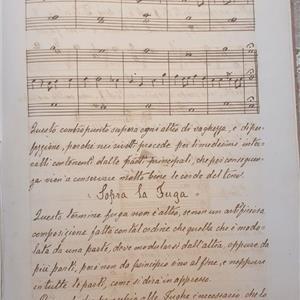 Questo contropunto supera ogni altro di vaghezza, e di per-
fezzione, perchè nei rivolti procede per i medesimi inter-
valli contenenti dalle parti principali, che poi conseguen-
za vien a conservare molto bene le corde del tono.
Sopra la Fuga
Questo termine fuga non è altro, se non un artificiosa
composizione fatta con tal ordine che quello che è modu-
lato da una parte, deve modularsi dall'altra, oppure da
più parti, però non da principio sino al fine, e neppure
in tutte le parti, come si dirà in appresso.
alle Fughe è necessario, che lo